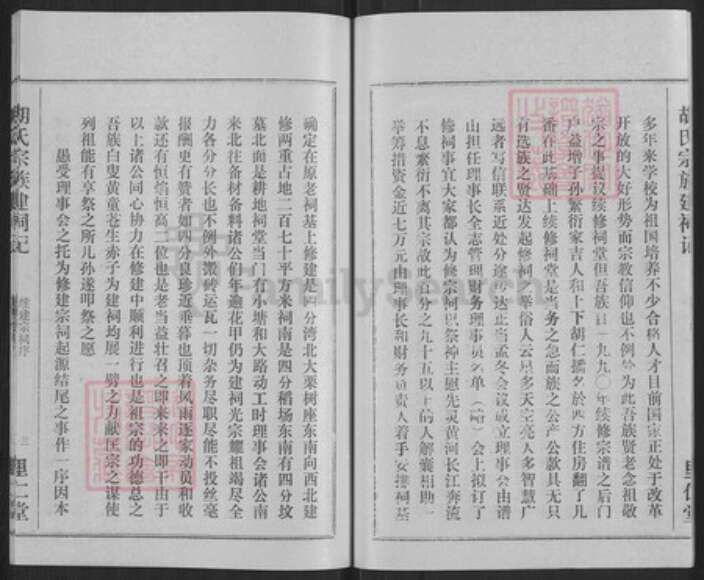 胡氏宗族建祠记
里仁堂
多年来学校为祖国培养不少合格人才目前国家正处于改革
开放的大好形势而宗教信仰也不例外为此吾族贤老念祖敬
宗之事提议续修祠堂但吾族自一九九〇年续修宗谱之后门
户益增子孙繁衍家吉人和上下胡仁播名於四方住房翻了几
番在此基础上续修祠堂是当务之急而族之公产公款其无只
有选族之贤达发起修祠之举俗人云只多天宗亮人多智慧广
远者写信联系近处分途传达正当孟冬会议成立理事会由谱
山担任理事长全志管理财务理事员名单（略）会上拟订了
修祠事宜大家都认为修宗祠以祭神主慰先灵黄河长江奔流
不息繁衍不离其宗故此百分之九十五以上的人解囊相助一
举筹措资金近七万元由理事长和财务负责人着手安排祠基
确定在原老祠基上修建是四分湾北大栗树座东南向西北建
修两重占地二百七十平方米祠南是四分稻场东南有四分坟
墓北面是耕地祠堂当门有小塘和大路动工时理事会诸公南
来北往备材备料诸公们年逾花甲仍为建祠光宗耀祖竭尽全
力各分分长也不例外搬砖运瓦一切杂务尽职尽能不投丝毫
报酬更有赞者如四分良珍近垂暮也顶着风雨逐家动员和收
款还有恒焰恒高二位也是老当益壮召之即来来之即干由于
以上诸公同心协力在修建中顺利进行也是祖宗的功德总之
吾族白叟黄童苍生赤子为建祠均展一劈之力献匡宗之谋使
列祖能有享祭之所儿孙遂叩祭之愿
愚受理事会之托为修建宗祠起源结尾之事作一序因本
胡氏宗族建祠记
续建宗祠序
三
里仁堂
FamilySearch